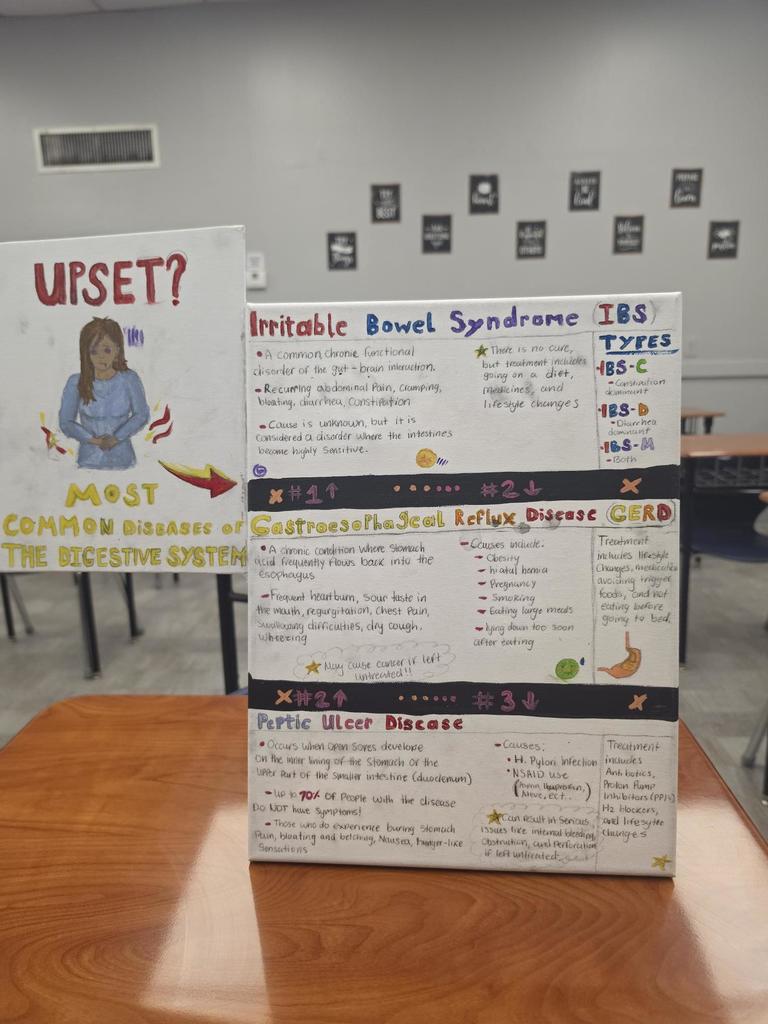 UPSET?
MOST
COMMON DISEASES OF
THE DIGESTIVE SYSTEM
Irritable Bowel Syndrome (IBS)
• A common chronic functional
disorder of the gut-brain interaction.
- Recurring abdominal Pain, cramping,
bloating, diarrhea, Constipation
• Cause is unknown, but it is
considered a disorder where the intestines
become highly Sensitive.
There is no cure,
but treatment includes
going on a diet,
medicines, and
lifestyle changes
TYPES
•IBS-C
- Constipation
dominant
•IBS-D
- Diarrhea
dominant
•IBS-M
- Both
#1↑ #2↓
Gastroesophageal Reflux Disease GERD
• A chronic condition where stomach
acid frequently flows back into the
esophagus
- Frequent heartburn, sour taste in
the mouth, regurgitation, chest Pain,
Swallowing difficulties, dry cough,
wheezing
May cause cancer if left
untreated!!
- Causes include:
- Obesity
- hiatal hernia
- Pregnancy
- Smoking
- Eating large meals
- lying down too soon
after eating
Treatment
includes lifestyle
Changes, medication
avoiding trigger
foods, and not
eating before
going to bed.
#2↑ #3↓
Peptic Ulcer Disease
• Occurs when open sores develope
on the inner lining of the stomach or the
upper part of the smaller intestine (duodenum)
- Up to 70% of People with the disease
DO NOT have symptoms!
• Those who do experience buring stomach
Pain, bloating and belching, Nausea, hunger-like
Sensations
- Causes:
• H. Pylori Infection
• NSAID use
Aleve, ect..)
Can result in Serious
issues like internal bleeding,
Obstruction, and Perforation
if left untreated
Treatment
includes
Antibiotics,
Proton Pump
Inhibitors (PPIs)
H2 blockers,
and lifestyle
changes